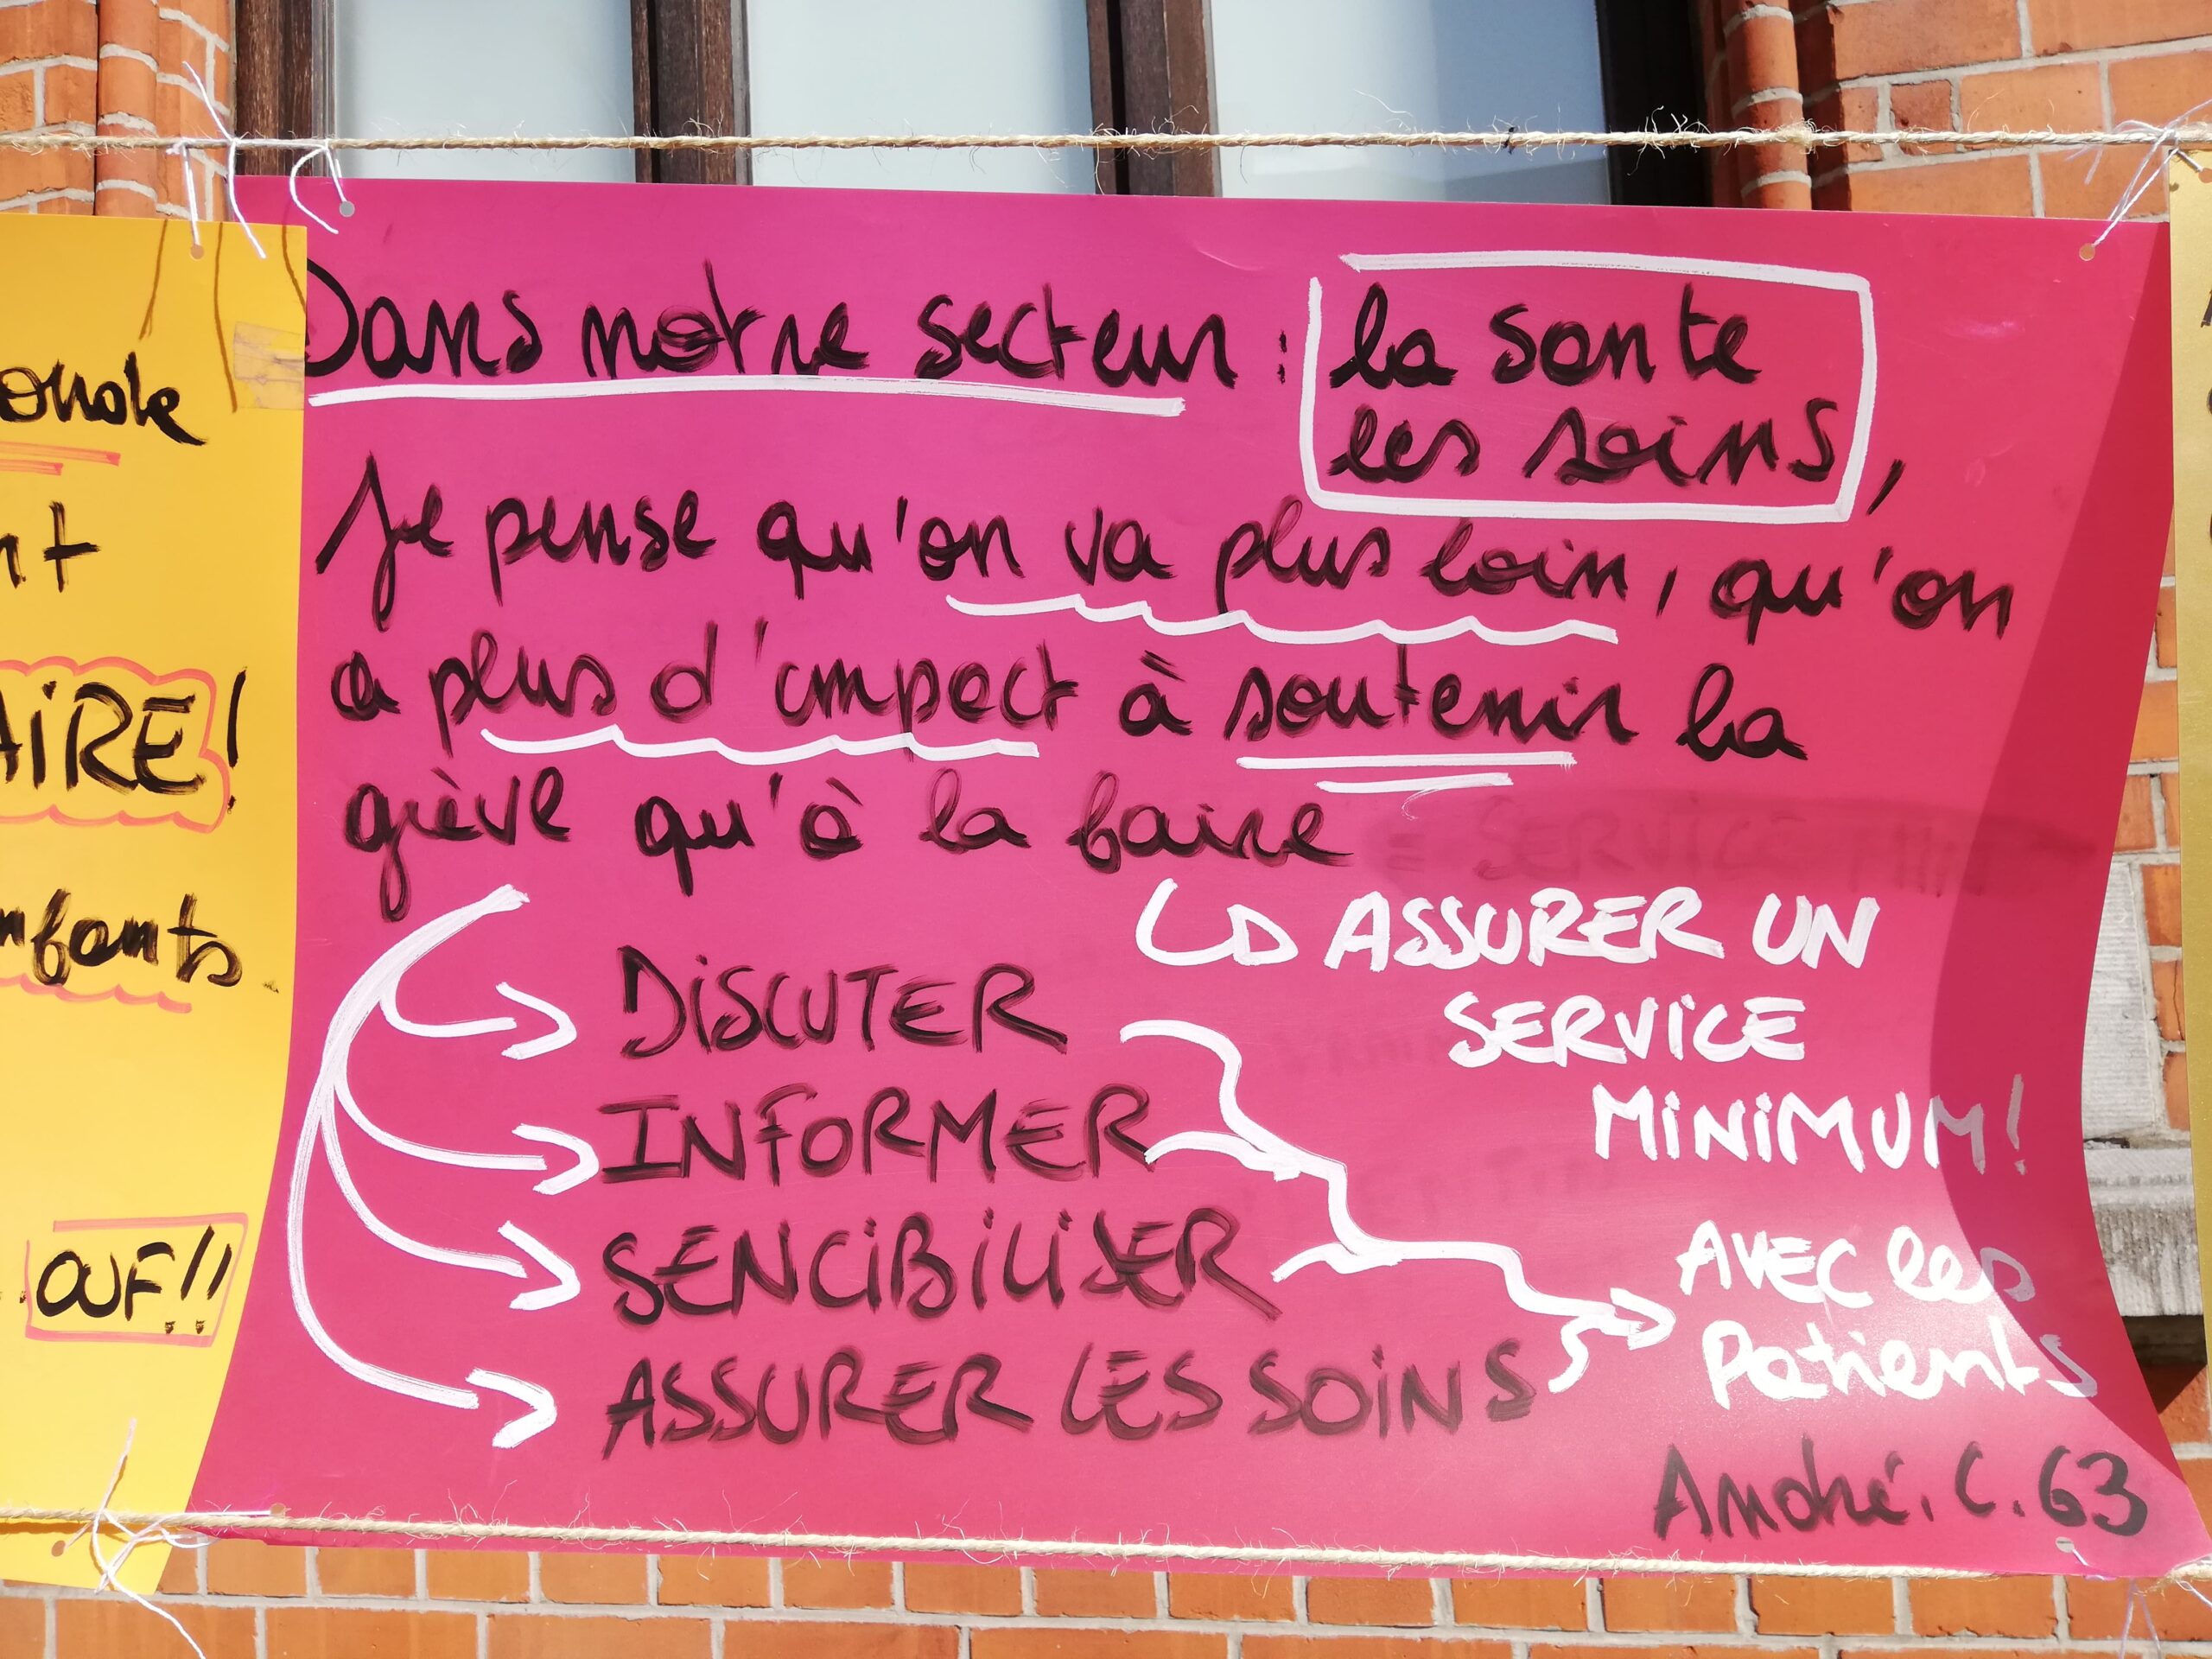 Dans notre secteur : la sante
les soins,
Je pense qu'on va plus loin, qu'on
a plus d'impact à soutenir la
grève qu'à la faire
↳ ASSURER UN
SERVICE
MINIMUM!
→ DISCUTER
→ INFORMER
→ SENCIBILISER
→ ASSURER LES SOINS
→ AVEC les
Patients
André. C. 63
nt
AIRE!
nfants.
OUF!!